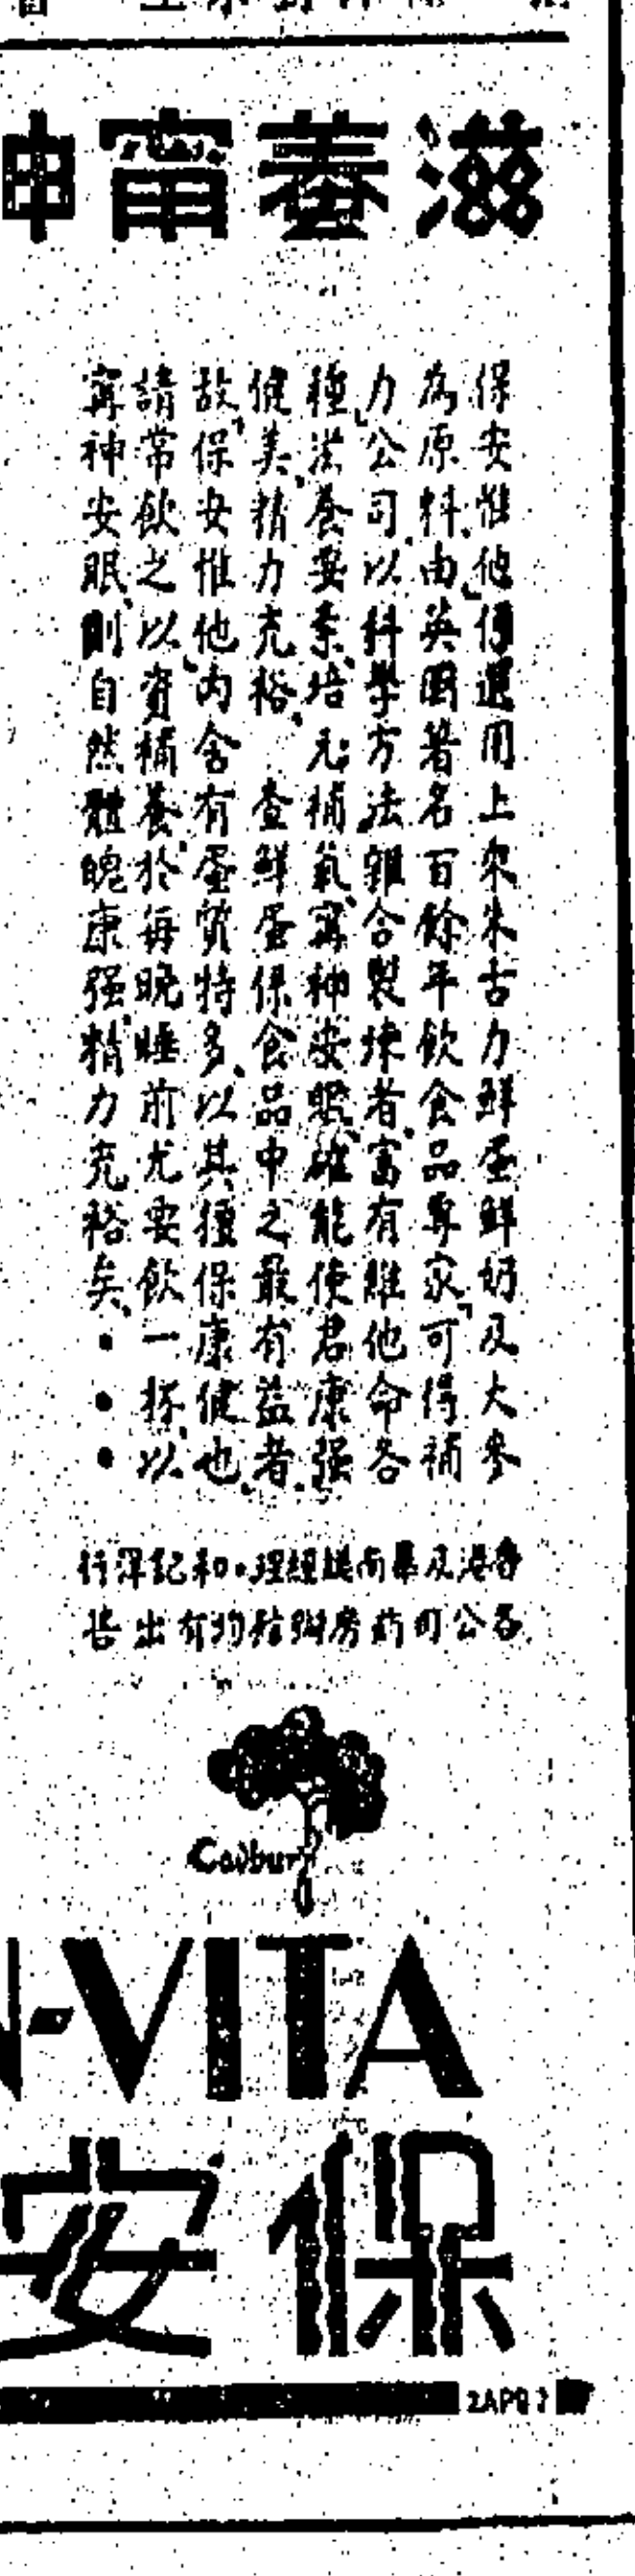 滋養甯神
保安惟他選用上朱古力鮮蛋鮮奶及大麥
為原料由英國著名百餘年飲食品專家「可得補
力公司」以科學方法雜合製煉者富有維他命各
種滋養要素培元補氣寗神安眠確能使君康强
健美精力充裕 查鮮蛋係食品中之最有益者
故保安惟他內含有蛋質特多以其保康健也
請常飲之以資補養於每晚睡前尤要飲一杯以
寗神安眠則自然體魄康强精力充裕矣・・・
香港及華南總經理・和記洋行
各公司葯房辦館均有出售
Cadbury
N-VITA
保安
2APQ